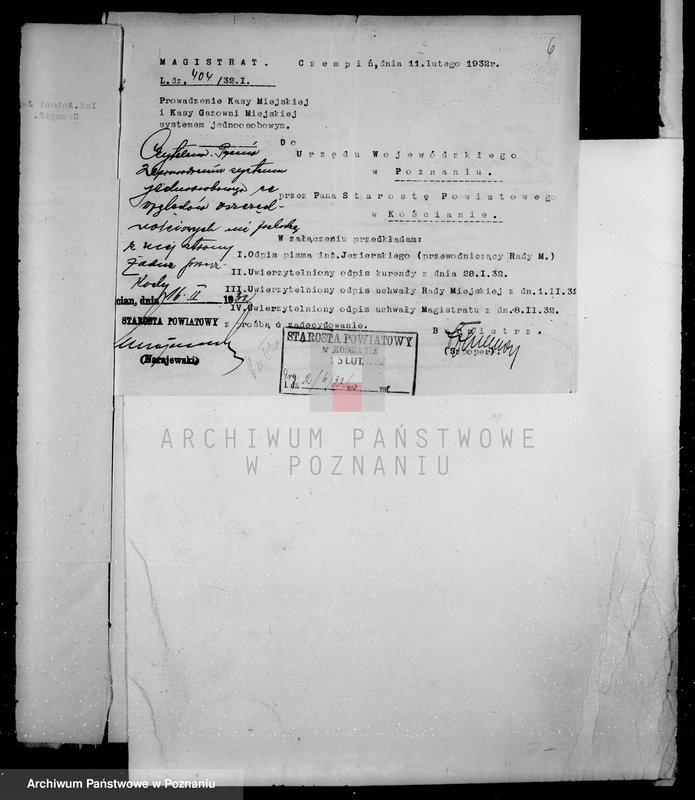 6
MAGISTRAT. Czempiń, dnia 11. lutego 1932r.
L.dz. 404/32.I.
Prowadzenie Kasy Miejskiej
i Kasy Gazowni Miejskiej
systemem jednoosobowym.
Do
Urzędu Wojewódzkiego
w Poznaniu.
przez Pana Starostę Powiatowego
w Kościanie.
W załączeniu przedkładam:
I. Odpis pisma inż. Jezierskiego (przewodniczący Rady M.)
II. Uwierzytelniony odpis kurendy z dnia 28.I.32.
III. Uwierzytelniony odpis uchwały Rady Miejskiej z dn. 1.II.32
IV. Uwierzytelniony odpis uchwały Magistratu z dn. 8.II.32.
z prośbą o zadecydowanie.
Burmistrz.
(Sztoper)
systemu
jednoosobowego ze
względów oszczęd-
nościowych nie
z mej strony
żadne przesz-
kody
cian, dnia 16. II 1932
STAROSTA POWIATOWY
(Narajewski)
STAROSTA POWIATOWY
w KOŚCIANIE
15 LUT. 1932
L.dz. 2/6/32 zał.
Inż. Antoni Je
Czempiń.
ARCHIWUM PAŃSTWOWE
W POZNANIU
Archiwum Państwowe w Poznaniu